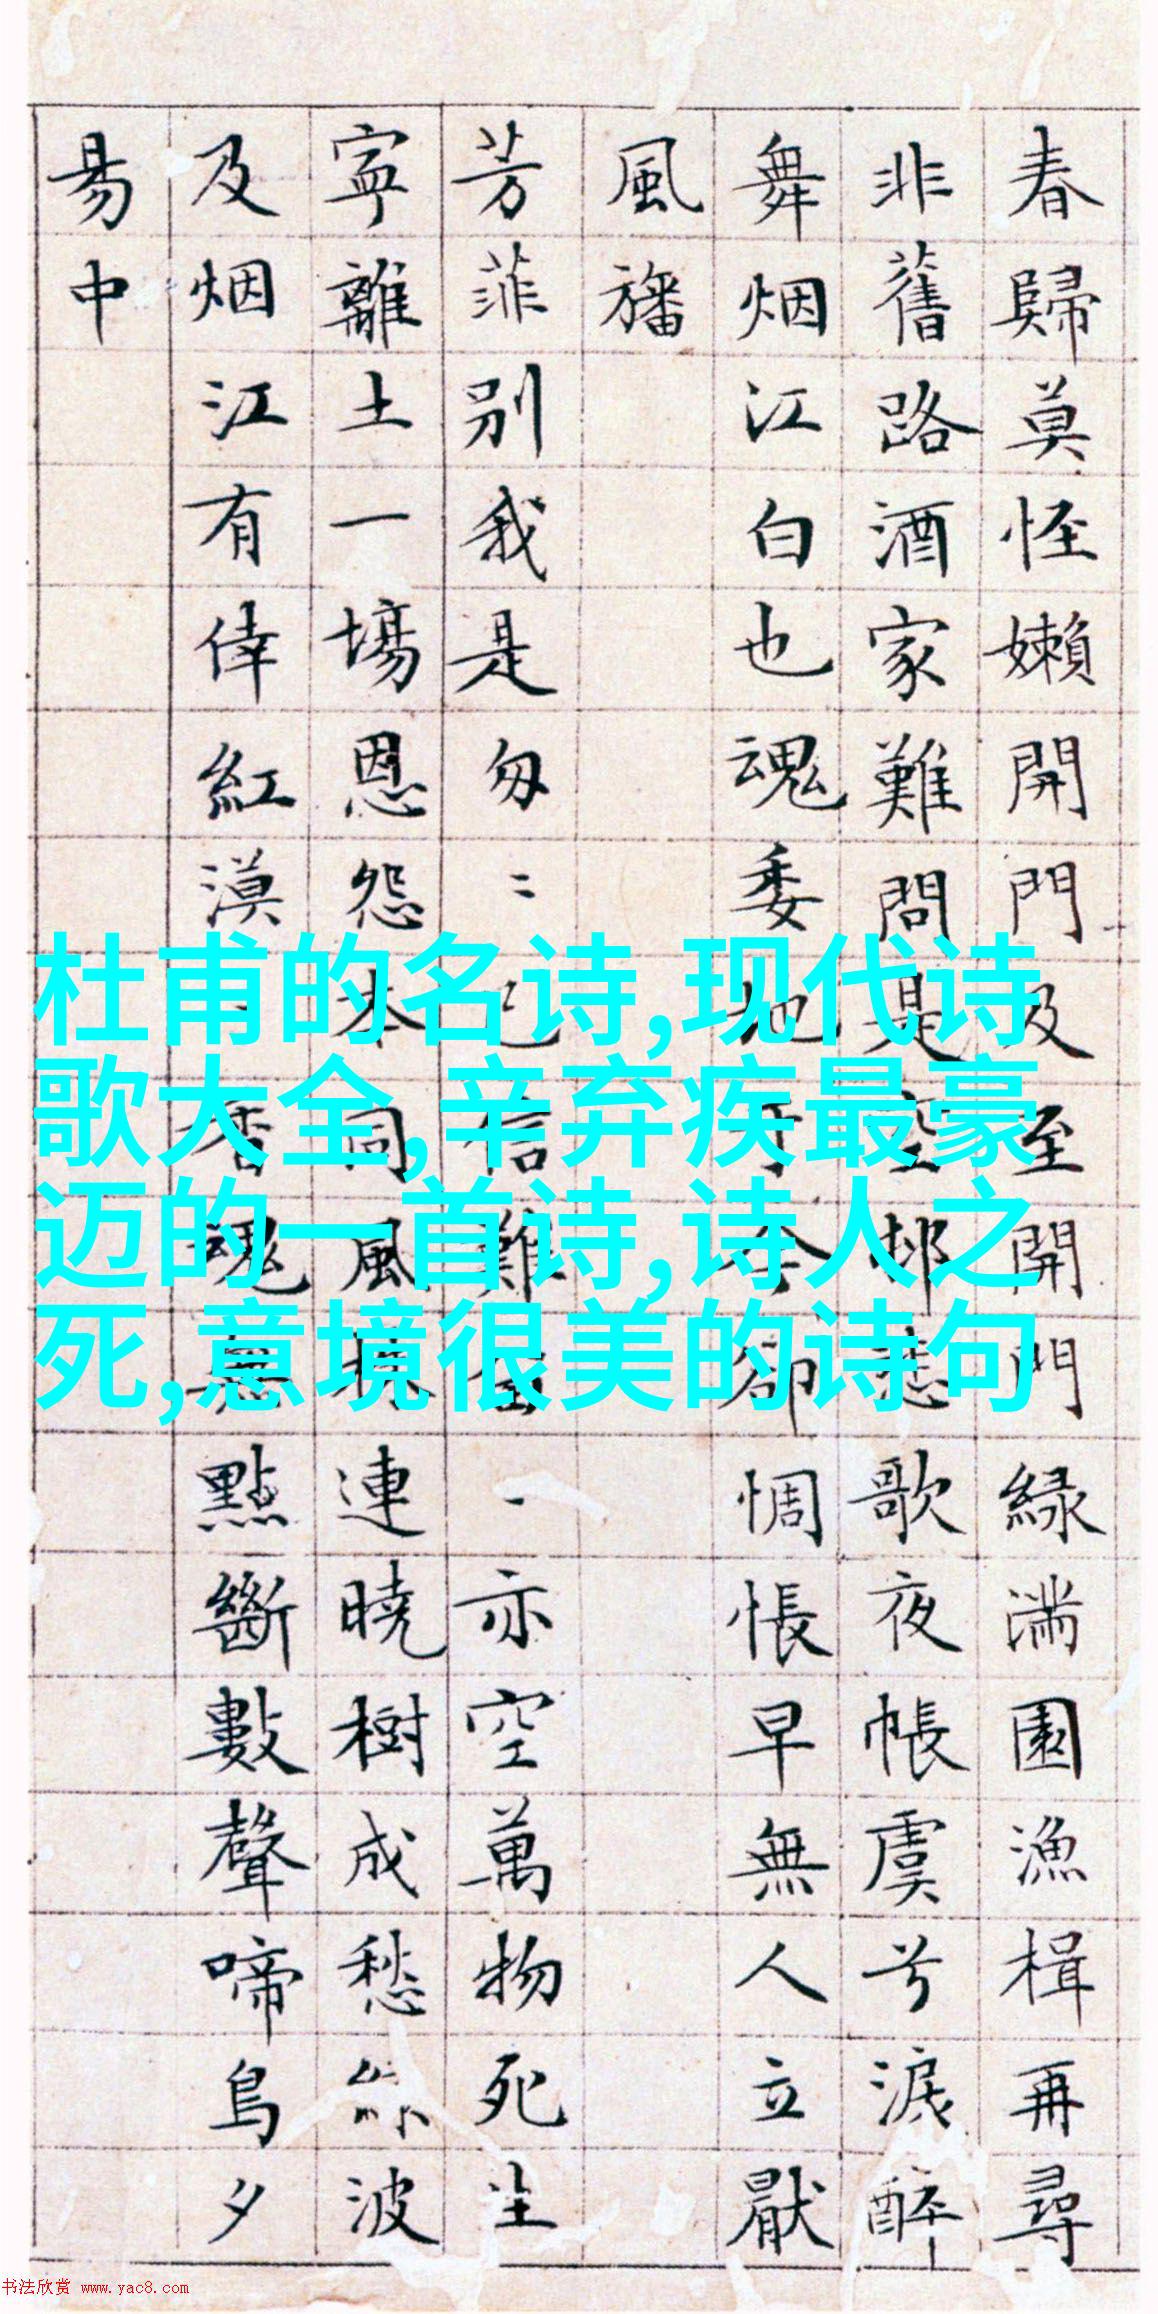 春歸莫怪嬾開門及至開門緑滿園漁楫再尋
非舊路酒家難問是空邨悲歌夜帳虞兮淚醉
舞烟江白也魂委地于今卻惆悵早無人立厭
風旛
芳菲別我是匆〻已信難留〻亦空萬物死生
寧離土一場恩怨本同風株連曉樹成愁絲波
及烟江有倖紅漠〻香魂無點斷數聲啼鳥夕
易中
杜甫的名诗,现代诗
歌大全,辛弃疾最豪
迈的一首诗,诗人之
死,意境很美的诗句
书法欣赏 www.yac8.com